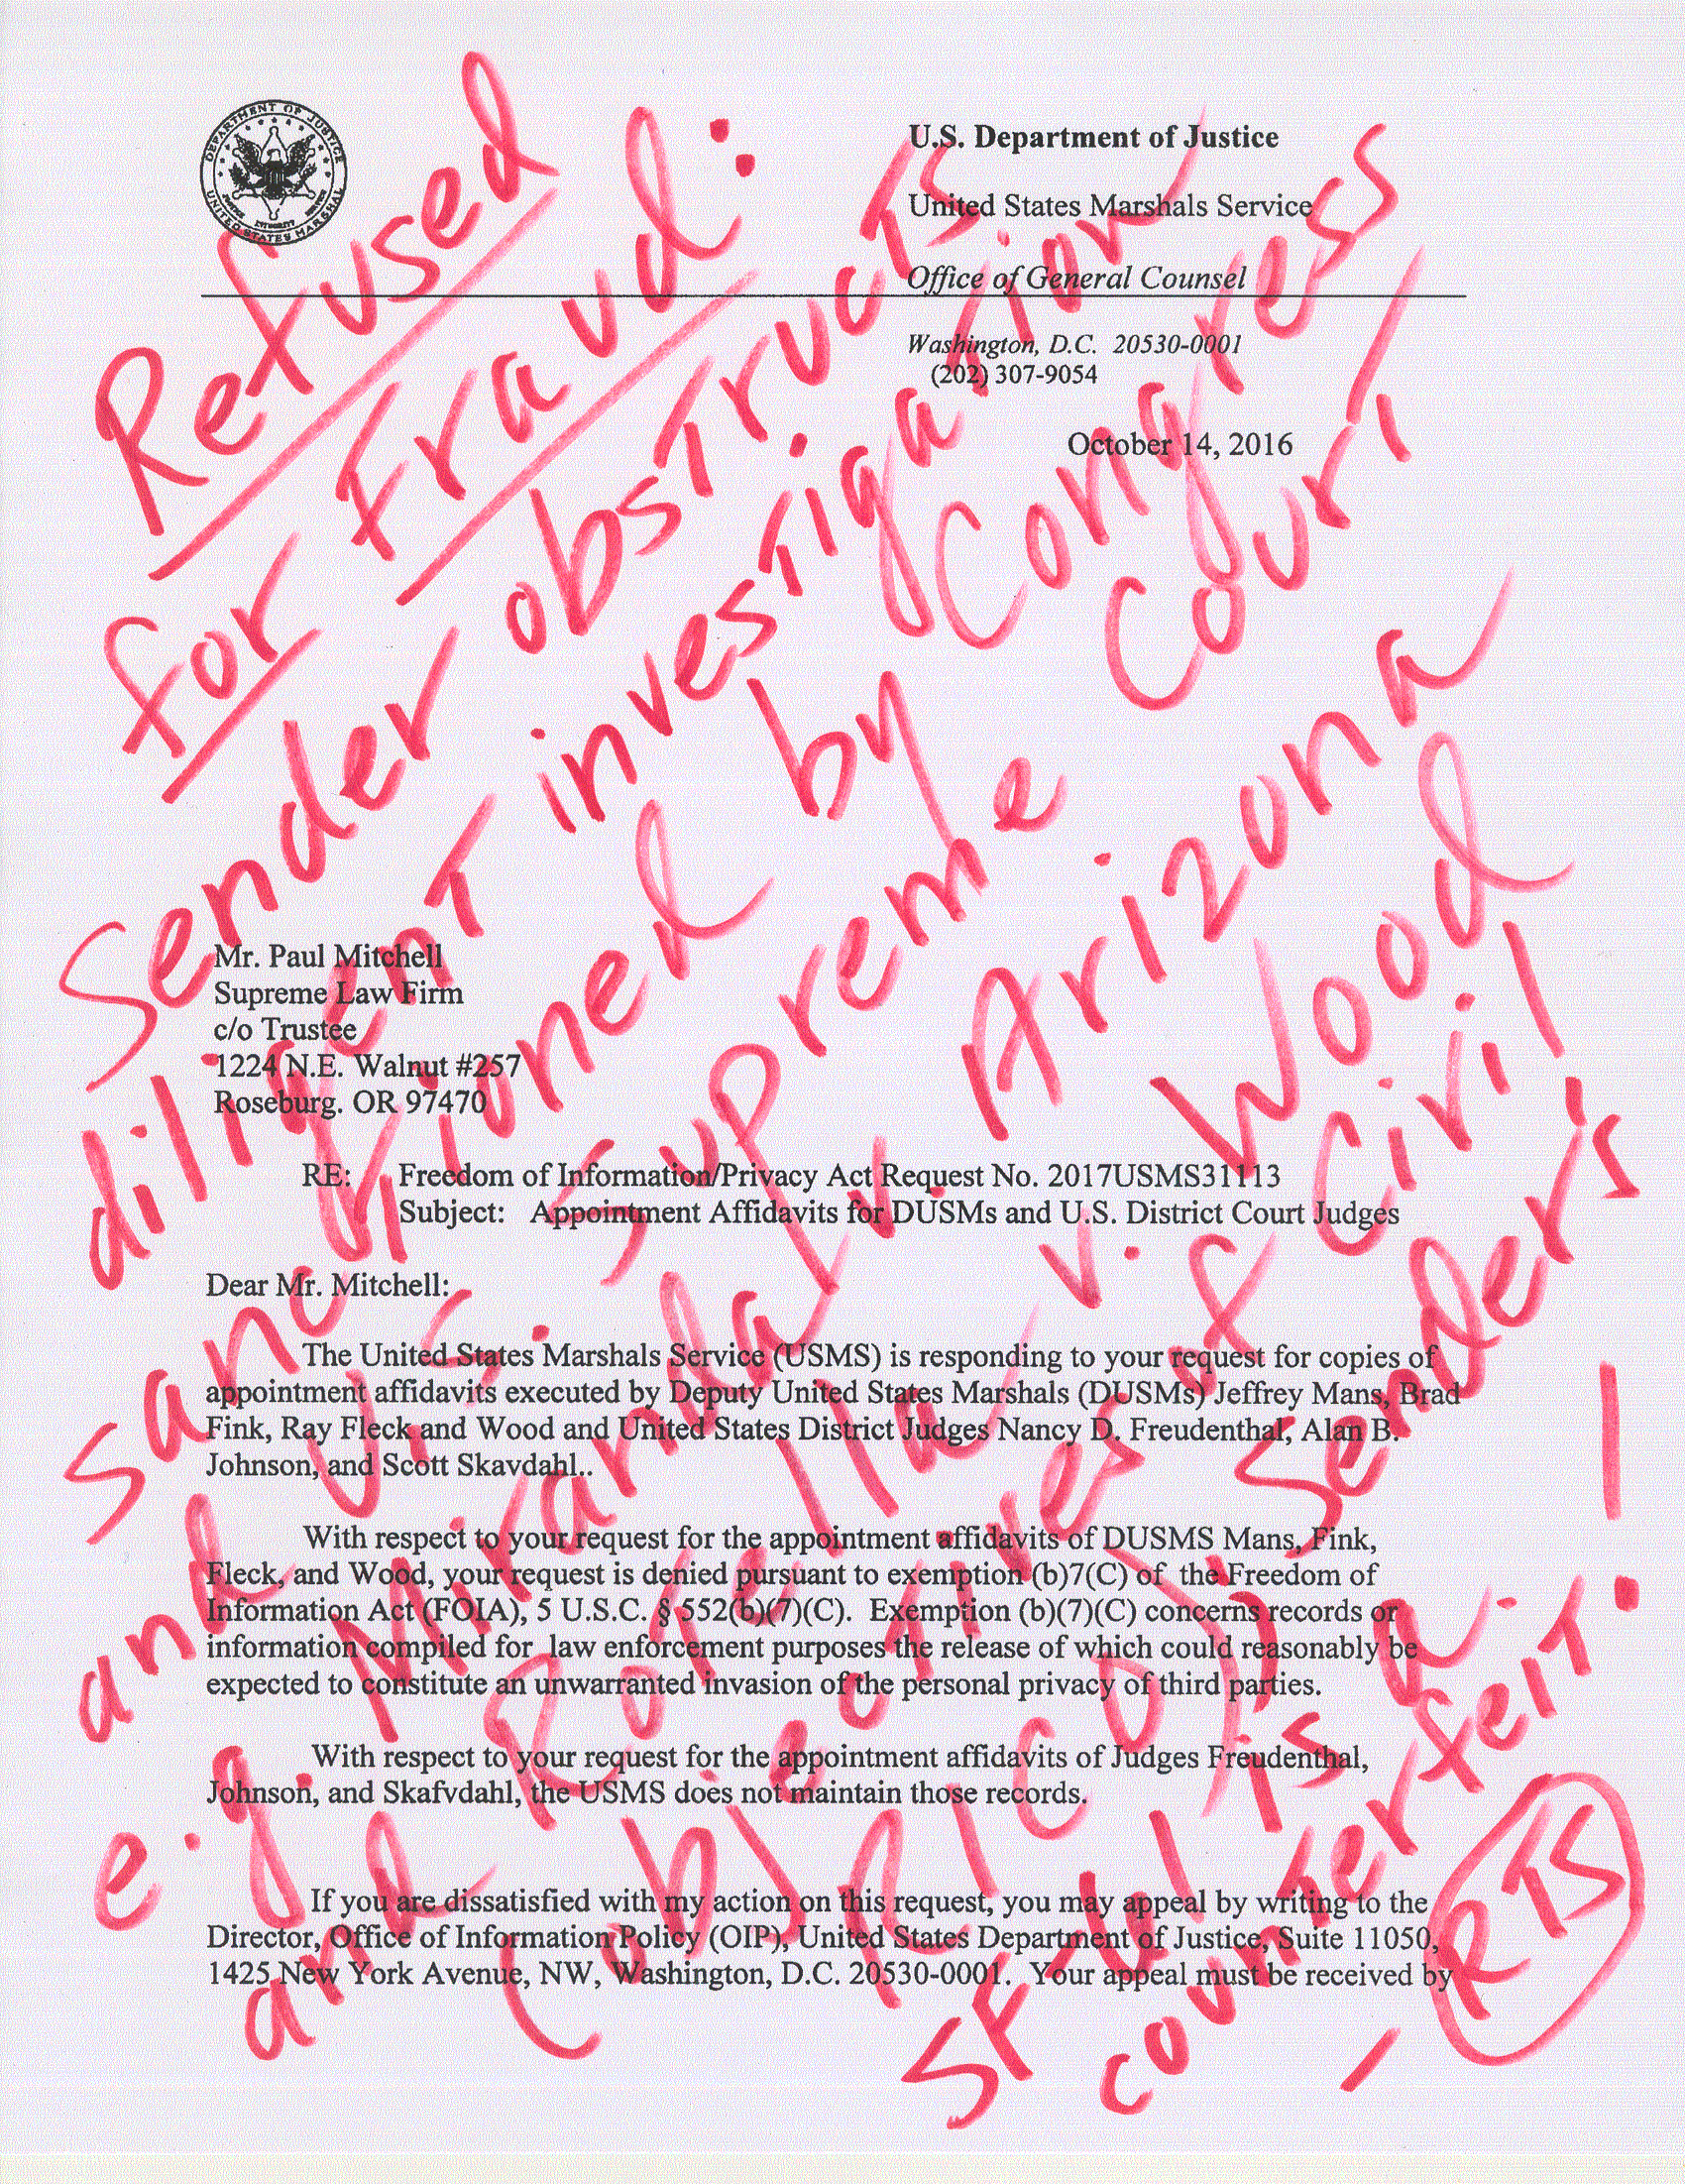 DEPARTMENT OF JUSTICE
UNITED STATES MARSHAL
JUSTICE INTEGRITY SERVICE
U.S. Department of Justice
United States Marshals Service
Office of General Counsel
Washington, D.C. 20530-0001
(202) 307-9054
October 14, 2016
Mr. Paul Mitchell
Supreme Law Firm
c/o Trustee
1224 N.E. Walnut #257
Roseburg. OR 97470
RE: Freedom of Information/Privacy Act Request No. 2017USMS31113
Subject: Appointment Affidavits for DUSMs and U.S. District Court Judges
Dear Mr. Mitchell:
The United States Marshals Service (USMS) is responding to your request for copies of
appointment affidavits executed by Deputy United States Marshals (DUSMs) Jeffrey Mans, Brad
Fink, Ray Fleck and Wood and United States District Judges Nancy D. Freudenthal, Alan B.
Johnson, and Scott Skavdahl..
With respect to your request for the appointment affidavits of DUSMS Mans, Fink,
Fleck, and Wood, your request is denied pursuant to exemption (b)7(C) of the Freedom of
Information Act (FOIA), 5 U.S.C. § 552(b)(7)(C). Exemption (b)(7)(C) concerns records or
information compiled for law enforcement purposes the release of which could reasonably be
expected to constitute an unwarranted invasion of the personal privacy of third parties.
With respect to your request for the appointment affidavits of Judges Freudenthal,
Johnson, and Skafvdahl, the USMS does not maintain those records.
If you are dissatisfied with my action on this request, you may appeal by writing to the
Director, Office of Information Policy (OIP), United States Department of Justice, Suite 11050,
1425 New York Avenue, NW, Washington, D.C. 20530-0001. Your appeal must be received by
Refused
for Fraud:
Sender obstructs
diligent investigation
sanctioned by Congress
and U.S. Supreme Court
e.g. Miranda v. Arizona
and Rotella v. Wood
(objectives of Civil
RICO) Sender's
SF-61 is a
counterfeit!
- RTS